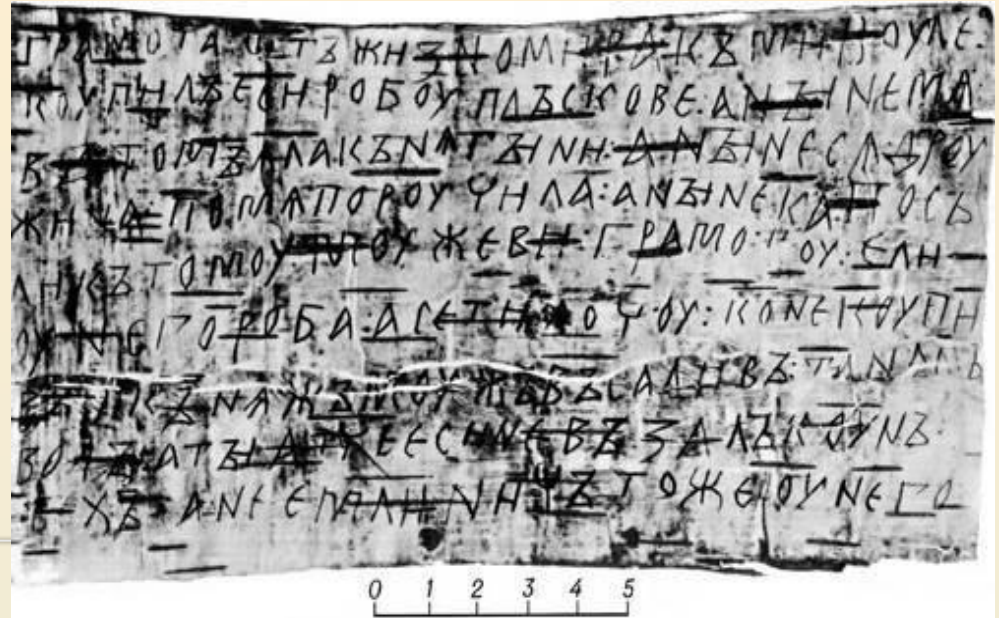 ГРАМОТА : ѠТЪ ЖИЗНОМИРА : КЪ МИКОУЛЕ :
КОУПИЛЪ ЕСИ : РОБОУ : ПЛЪСКОВЕ : А НЪІНЕ МѦ :
ВЪ ТОМЪ : ѦЛА КЪНѦГЪІНИ : А НЪІНЕ СѦ ДРОУ
ЖИНА : ПО МѦ ПОРОУЧИЛА : А НЪІНЕ КА : ПОСЪ
ЛИ КЪ ТОМОУ : МОУЖЕВИ : ГРАМОТОУ : ЕЛИ
ОУ НЕГО РОБА : А СЕ ТИ ХОЧОУ : КОНЕ КОУПИ
ВЪ : И КЪНѦЖЪ МОУЖЪ ВЪСАДИВЪ : ТА НА СЪ
ВОДЪІ : А ТЪІ АТЧЕ ЕСИ НЕ ВЪЗАЛЪ КОУНЪ :
ТЕХЪ : А НЕ ЕМЛИ : НИЧЪТО ЖЕ : ОУ НЕГО :
0 1 2 3 4 5